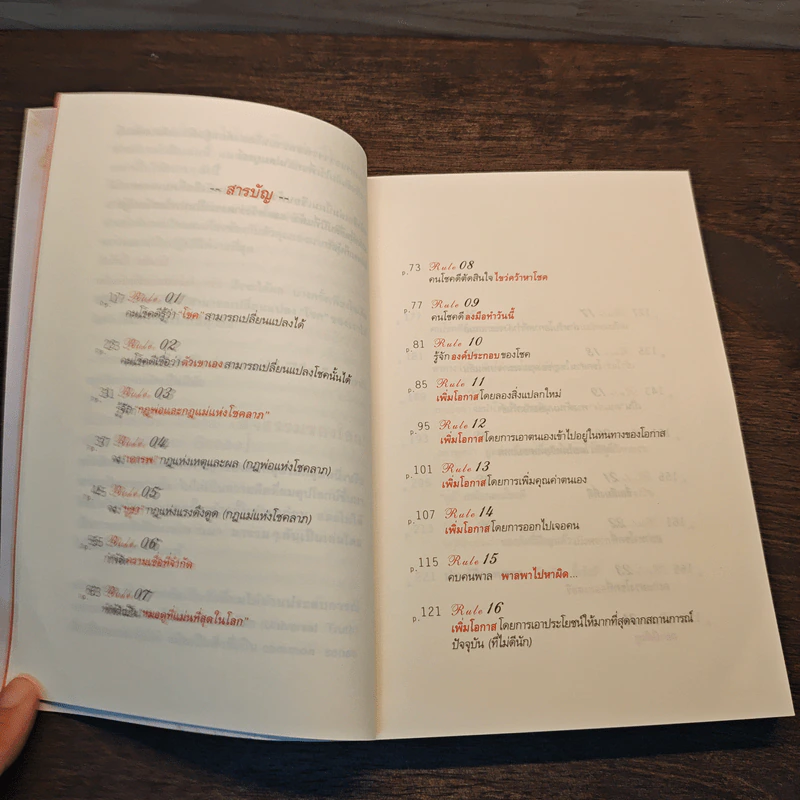 -- สารบัญ --
Rule 01
คนโชคดีรู้ว่า "โชค" สามารถเปลี่ยนแปลงได้
Rule 02
คนโชคดีเชื่อว่า ตัวเขาเอง สามารถเปลี่ยนแปลงโชคนั้นได้
Rule 03
"กฎพ่อและกฎแม่แห่งโชคลาภ"
Rule 04
กฎแห่งเหตุและผล (กฎพ่อแห่งโชคลาภ)
Rule 05
กฎแห่งแรงดึงดูด (กฎแม่แห่งโชคลาภ)
Rule 06
ความเชื่อที่จำกัด
Rule 07
"หมอดูที่แม่นที่สุดในโลก"
p.73 Rule 08
คนโชคดีตัดสินใจ ไขว่คว้าหาโชค
p.77 Rule 09
คนโชคดี ลงมือทำวันนี้
p.81 Rule 10
รู้จัก องค์ประกอบ ของโชค
p.85 Rule 11
เพิ่มโอกาส โดยลองสิ่งแปลกใหม่
p.95 Rule 12
เพิ่มโอกาส โดยการเอาตนเองเข้าไปอยู่ในหนทางของโอกาส
p.101 Rule 13
เพิ่มโอกาส โดยการเพิ่มคุณค่าตนเอง
p.107 Rule 14
เพิ่มโอกาส โดยการออกไปเจอคน
p.115 Rule 15
คบคนพาล พาลพาไปหาผิด...
p.121 Rule 16
เพิ่มโอกาส โดยการเอาประโยชน์ให้มากที่สุดจากสถานการณ์
ปัจจุบัน (ที่ไม่ดีนัก)